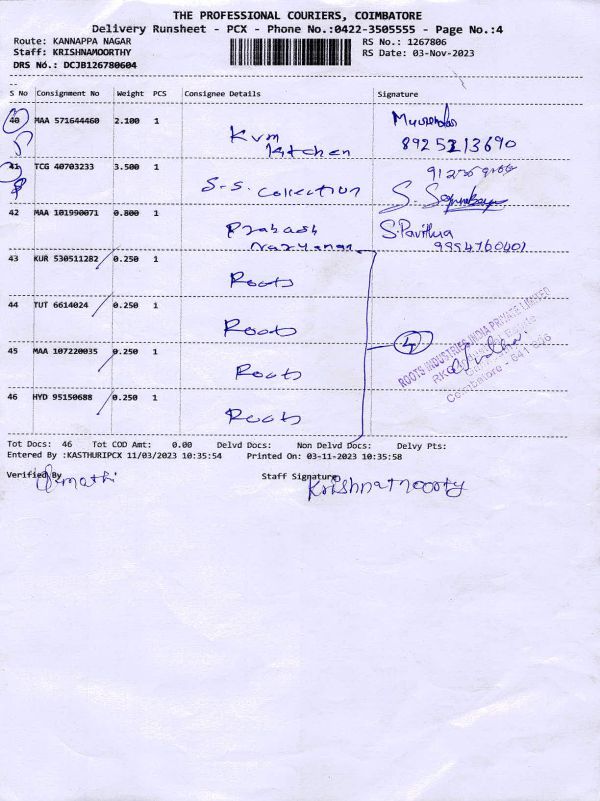 THE PROFESSIONAL COURIERS, COIMBATORE
Delivery Runsheet - PCX - Phone No.:0422-3505555 - Page No.:4
Route: KANNAPPA NAGAR RS No.: 1267806
Staff: KRISHNAMOORTHY RS Date: 03-Nov-2023
DRS No.: DCJB126780604
S No Consignment No Weight PCS Consignee Details Signature
40 MAA 571644460 2.100 1 Kvm Kitchen
8925213690
41 TCG 40703233 3.500 1 S.S. Collection
42 MAA 101990071 0.800 1 Prakash S.Pavithra
9994760401
43 KUR 530511282 0.250 1 Roots
44 TUT 6614024 0.250 1 Roots
4
45 MAA 107220035 0.250 1 Roots
46 HYD 95150688 0.250 1 Roots
ROOTS INDUSTRIES INDIA PRIVATE LIMITED
Coimbatore - 641
Tot Docs: 46 Tot COD Amt: 0.00 Delvd Docs: Non Delvd Docs: Delvy Pts:
Entered By :KASTHURIPCX 11/03/2023 10:35:54 Printed On: 03-11-2023 10:35:58
Verified By Staff Signature
Krishnamoorty